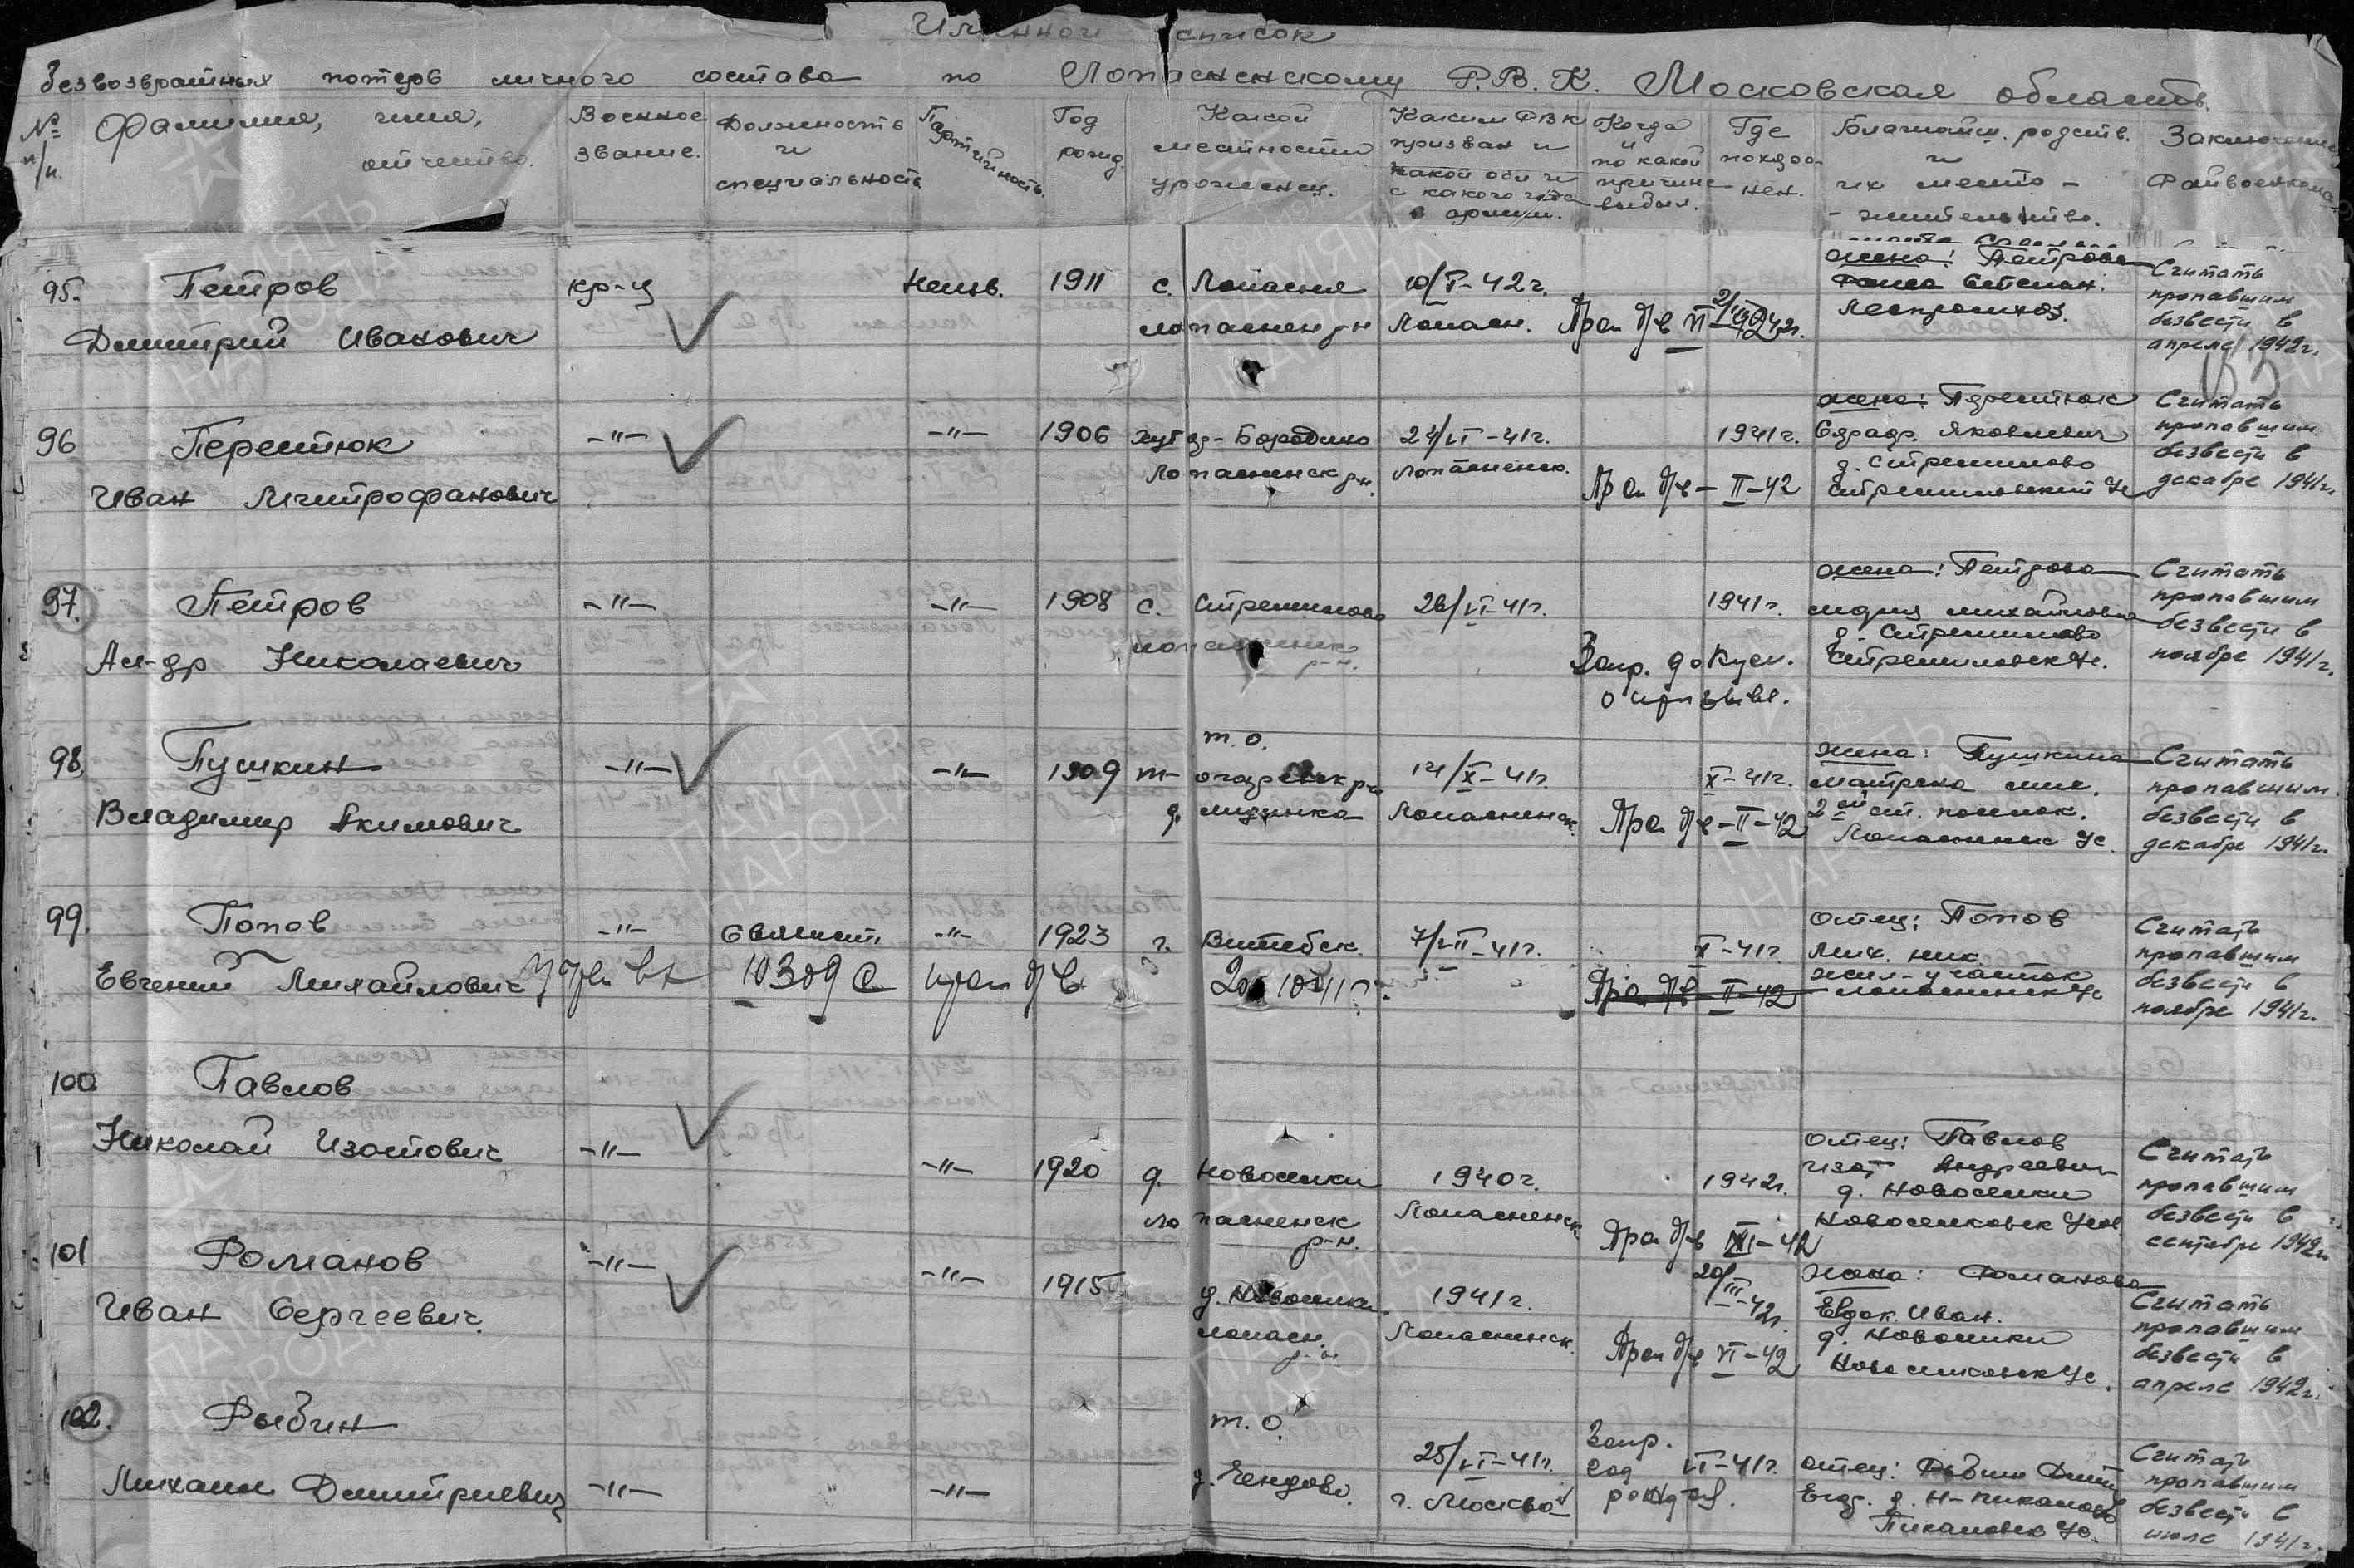 Именной список
безвозвратных потерь личного состава по Лопасненскому Р.В.К. Московская область.
№ п/п.
Фамилия, имя, отчество.
Военное звание.
Должность и специальность
Партийность
Год рожд.
Какой местности уроженец.
Каким РВК призван и какой обл и с какого года в армии.
Когда и по какой причине выбыл.
Где похоронен.
Ближайш. родств. и их место-жительство.
Заключение Райвоенкома
95. Петров кр-цНенв. 1911 с. Лопасня 10/V-42г. жена: Петрова Считать
Дмитрий Иванович лопаснен р-н Лопасн. Проп б/в VI 42г. Степан. пропавшим
Леспромхоз. безвести в
апреле 1942г.
96 Перетюк -"- -"- 1906 хут Бородино 24/VI-41г. 1941г. жена: Перетюк Считать
Иван Митрофанович Лопасненск р-н. Лопасненск. Проп б/в - II-42 Яковлевич пропавшим
д. Стремилово безвести в
Стремиловский с/с декабре 1941г.
97. Петров -"- -"- 1908 с. Стремилово 26/VI-41г. 1941г. жена: Петрова Считать
Ал-др Николаевич р-н. Запр. докум. о призыве. Михайловна пропавшим
д. Стремилово безвести в
Стремиловск с/с. ноябре 1941г.
98. Пушкин -"- -"- 1909 т.о. 14/X-41г. X-41г. жена: Пушкина Считать
Владимир Акимович д. Лопасненск. Проп б/в - II-42 Матрена мих. пропавшим
2ой ст. поселок. безвести в
Лопасненск с/с. декабре 1941г.
99. Попов -"- Связист. -"- 1923 г. Витебск. 7/VII-41г. X-41г. отец: Попов Считать
Евгений Михайлович 10309 с проп б/в 20 10 41г. Проп б/в II-42 Мих. ник. пропавшим
жил-участок безвести в
Лопасненск с/с ноябре 1941г.
100 Павлов
Николай Изотович -"- -"- 1920 д. Новоселки 1940г. 1942г. отец: Павлов Считать
Лопасненск р-н. Лопасненск. Проп б/в XII-42 Изот Андреевич пропавшим
д. Новоселки безвести в
Новоселковск с/сов сентябре 1942г.
101 Романов -"- -"- 1915 д. Новоселки 1941г. 20/III-42г. жена: Романова Считать
Иван Сергеевич. лопасн. р-н Лопасненск. Проп б/в VI-42 Евдок. Иван. пропавшим
д. Новоселки безвести в
Новоселковск с/с. апреле 1942г.
102. Рыбин т.о.
Михаил Дмитриевич -"- -"- д. 25/VI-41г. г. Москва Запр. год рожд. VI-41г. отец: Рыбин Дмит Считать
Егор. д. пропавшим
с/с. безвести в
июле 1941г.
ПАМЯТЬ НАРОДА